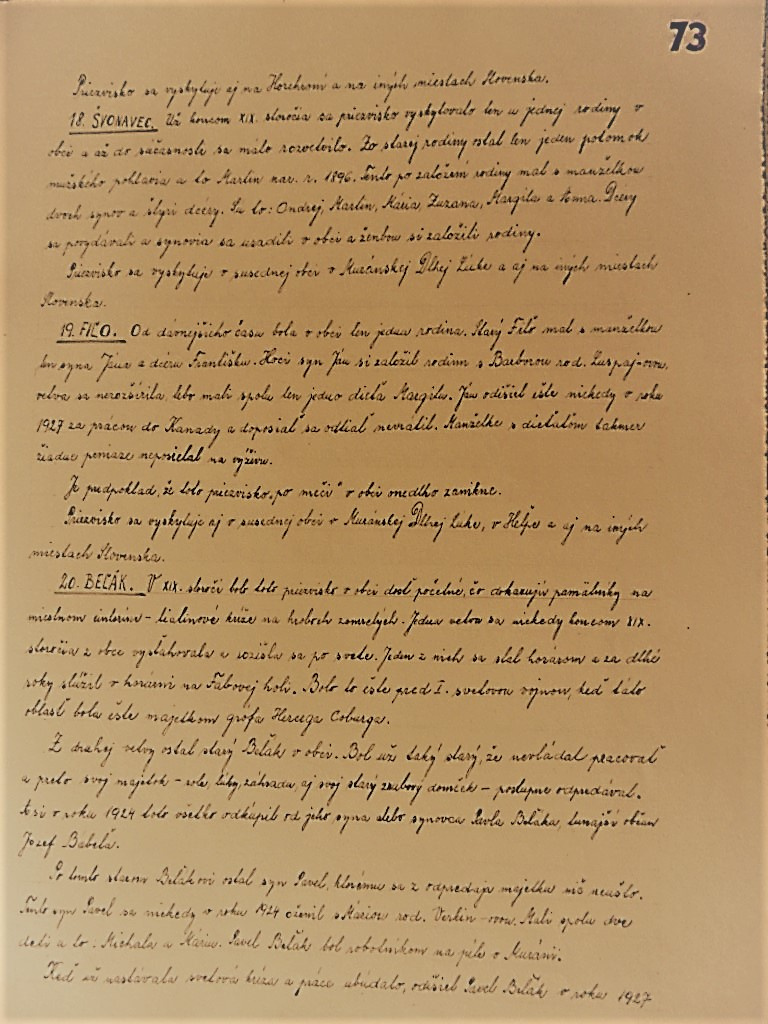 73
Priezvisko sa vyskytuje aj na Horehroní a na iných miestach Slovenska.
18. ŠVONAVEC. Už koncom XIX. storočia sa priezvisko vyskytovalo len u jednej rodiny v
obci a až do súčasnosti sa málo rozvetvilo. Zo starej rodiny ostal len jeden potomok
mužského pohlavia a to Martin nar. r. 1896. Tento po založení rodiny mal s manželkou
dvoch synov a štyri dcéry. Sú to: Ondrej, Martin, Mária, Zuzana, Margita a Anna. Dcéry
sa povydávali a synovia sa usadili v obci a ženbou si založili rodiny.
Priezvisko sa vyskytuje v susednej obci v Muránskej Dlhej Lúke a aj na iných miestach
Slovenska.
19. FIĽO. Od dávnejšieho času bola v obci len jedna rodina. Starý Fiľo mal s manželkou
len syna Jána a dcéru Františku. Hoci syn Ján si založil rodinu s Barborou rod.
vetva sa nerozšírila, lebo mali spolu len jedno dieťa Margitu. Ján odišiel ešte niekedy v roku
1927 za prácou do Kanady a doposiaľ sa odtiaľ nevrátil. Manželke s dieťaťom takmer
žiadne peniaze neposielal na výživu.
Je predpoklad, že toto priezvisko „po meči" v obci onedlho zanikne.
Priezvisko sa vyskytuje aj v susednej obci v Muránskej Dlhej Lúke, v Heľpe a aj na iných
miestach Slovenska.
20. BEĽÁK. V XIX. storočí bolo toto priezvisko v obci dosť početné, čo dokazujú pamätníky na
miestnom cintoríne - liatinové kríže na hroboch zomrelých. Jedna vetva sa niekedy koncom XIX.
storočia z obce vysťahovala a rozišla sa po svete. Jeden z nich sa stal horárom a za dlhé
roky slúžil v horárni na Fabovej holi. Bolo to ešte pred I. svetovou vojnou, keď táto
oblasť bola ešte majetkom grófa Hercega Coburga.
Z druhej vetvy ostal starý Beľák v obci. Bol už taký starý, že nevládal pracovať
a preto svoj majetok - role, lúky, záhradu, aj svoj starý zrubový domček - postupne odpredával.
Asi v roku 1924 toto všetko odkúpil od jeho syna alebo synovca Pavla Beľáka, tunajší občan
Jozef Babeľa.
Po tomto starom Beľákovi ostal syn Pavel, ktorému sa z odpredaja majetku nič neušlo.
Tento syn Pavel sa niekedy v roku 1924 oženil s Máriou rod. Verkin-ovou. Mali spolu dve
deti a to: Michala a Máriu. Pavel Beľák bol robotníkom na píle v Muráni.
Keď už nastávala svetová kríza a práce ubúdalo, odišiel Pavel Beľák v roku 1927